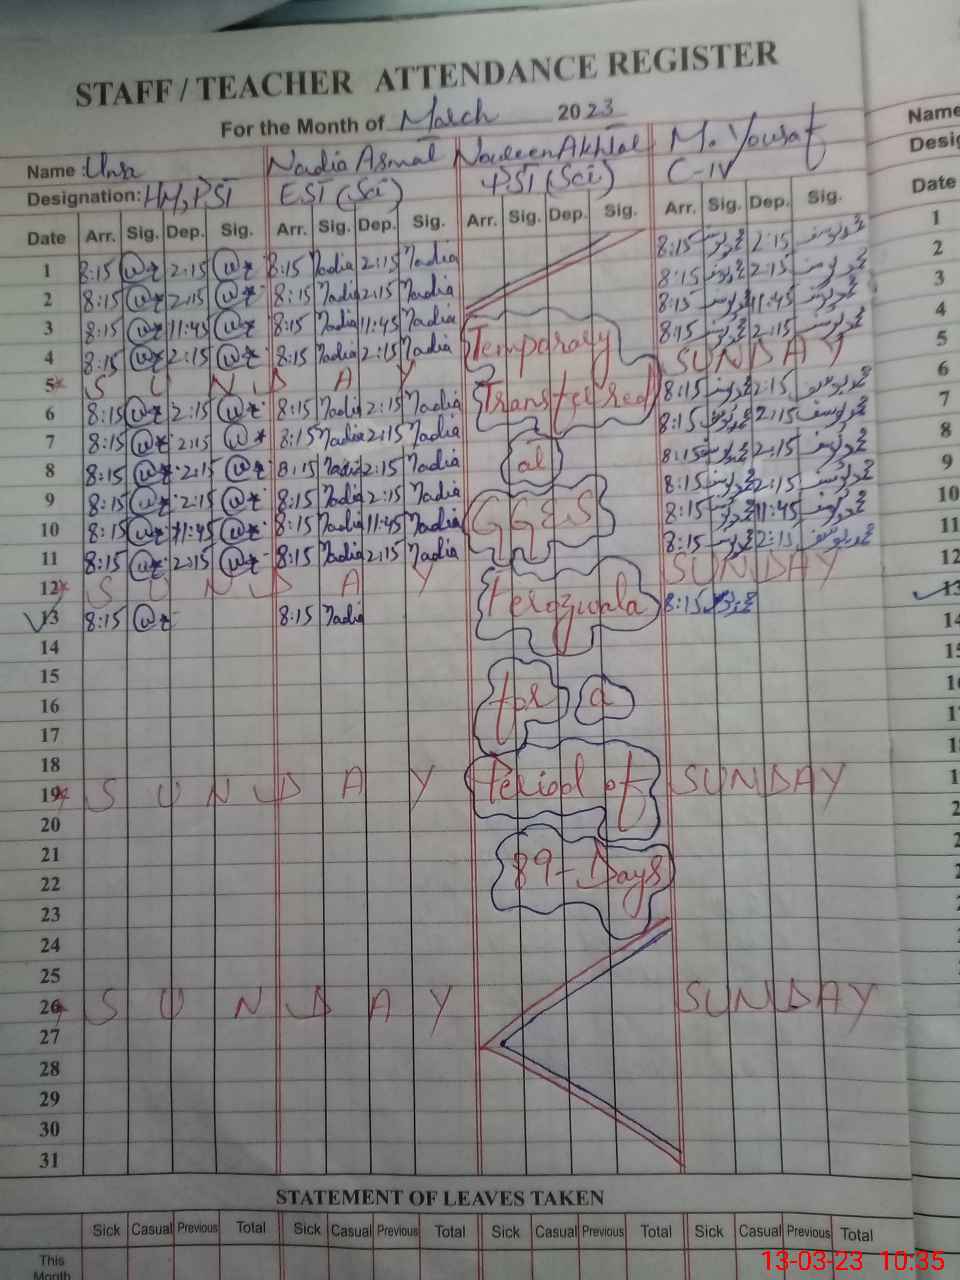 STAFF / TEACHER ATTENDANCE REGISTER
For the Month of March 2023
Name : Unsa Nadia Asmat Noureen Akhtar M. Yousaf Name
Designation: HM, PST EST (Sci) PST (Sci) C-IV
Date Arr. Sig. Dep. Sig. Arr. Sig. Dep. Sig. Arr. Sig. Dep. Sig. Arr. Sig. Dep. Sig. Date
1 8:15 2:15 8:15 Nadia 2:15 Nadia 8:15 محمد یوسف 2:15 محمد یوسف 1
2 8:15 2:15 8:15 Nadia 2:15 Nadia 8:15 محمد یوسف 2:15 محمد یوسف 2
3 8:15 11:45 8:15 Nadia 11:45 Nadia 8:15 محمد یوسف 11:45 محمد یوسف 3
4 8:15 2:15 8:15 Nadia 2:15 Nadia Temporary 8:15 محمد یوسف 2:15 محمد یوسف 4
5 SUNDAY SUNDAY 5
6 8:15 2:15 8:15 Nadia 2:15 Nadia Transferred 8:15 محمد یوسف 2:15 محمد یوسف 6
7 8:15 2:15 8:15 Nadia 2:15 Nadia 8:15 محمد یوسف 2:15 محمد یوسف 7
8 8:15 2:15 8:15 Nadia 2:15 Nadia at 8:15 محمد یوسف 2:15 محمد یوسف 8
9 8:15 2:15 8:15 Nadia 2:15 Nadia 8:15 محمد یوسف 2:15 محمد یوسف 9
10 8:15 11:45 8:15 Nadia 11:45 Nadia GGES 8:15 محمد یوسف 11:45 محمد یوسف 10
11 8:15 2:15 8:15 Nadia 2:15 Nadia 8:15 محمد یوسف 2:15 محمد یوسف 11
12 SUNDAY SUNDAY 12
13 8:15 8:15 Nadia Ferozwala 8:15 محمد یوسف 13
14 14
15
16 for a
17
18
19 SUNDAY Period of SUNDAY
20
21
22 89-Days
23
24
25
26 SUNDAY SUNDAY
27
28
29
30
31
STATEMENT OF LEAVES TAKEN
Sick Casual Previous Total Sick Casual Previous Total Sick Casual Previous Total Sick Casual Previous Total
This Month
13-03-23 10:35